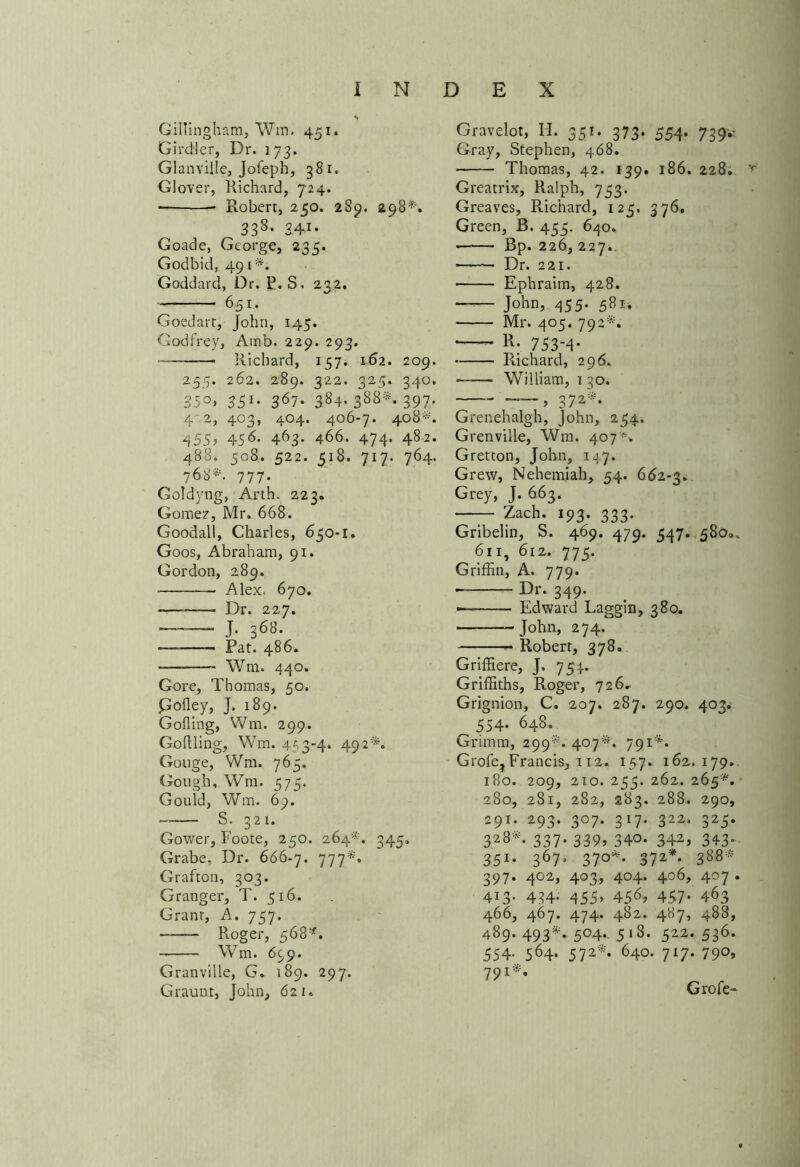 INDEX
Gillingham, Wm. 451.
Girdler, Dr. 173.
Glanville, Joſeph, 381.
Glover, Richard, 724.
—— Robert, 250. 289. 298*.
338. 341.
Goade, George, 235.
Godbid, 491*.
Goddard, Dr. P. S. 232.
—— 651.
Goedart, John, 145.
Godfrey, Amb. 229. 293.
—— Richard, 157. 162. 209.
255. 262. 289. 322. 325. 340.
350, 351. 367. 384. 388*. 397.
4 2, 403, 404. 406-7. 408*.
455, 456. 463. 466. 474. 482.
488. 508. 522. 518. 717. 764.
768*. 777.
Goldyng, Arth. 223.
Gomez, Mr. 668.
Goodall, Charles, 650-1.
Goos, Abraham, 91.
Gordon, 289.
—— Alex. 670.
—— Dr. 227.
—— J. 368.
—— Pat. 486.
—— Wm. 440.
Gore, Thomas, 50.
Goſley, J. 189.
Goſling, Wm. 299.
Goſtling, Wm. 453-4. 492*.
Gouge, Wm. 765.
Gough, Wm. 575.
Gould, Wm. 69.
—— S. 321.
Gower, Foote, 250. 264*. 345.
Grabe, Dr. 666-7. 777*.
Grafton, 303.
Granger, T. 516.
Grant, A. 757.
—— Roger, 568*.
—— Wm. 699.
Granville, G. 189. 297.
Graunt, John, 621.
Gravelot, H. 351. 373. 554. 739*
Gray, Stephen, 468.
—— Thomas, 42. 139. 186. 228.
Greatrix, Ralph, 753.
Greaves, Richard, 125. 376.
Green, B. 455. 640.
—— Bp. 226, 227.
—— Dr. 221.
—— Ephraim, 428.
—— John, 455. 581.
—— Mr. 405. 792*.
—— R. 753-4.
—— Richard, 296.
—— William, 130.
—— ——, 372*.
Grenehalgh, John, 254.
Grenville, Wm. 407*.
Gretton, John, 147.
Grew, Nehemiah, 54. 662-3.
Grey, J. 663.
—— Zach. 193. 333.
Gribelin, S. 469. 479. 547. 580.
611, 612. 775.
Griffin, A. 779.
—— Dr. 349.
—— Edward Laggin, 380.
—— John, 274.
—— Robert, 378.
Griffiere, J. 754.
Griffiths, Roger, 726.
Grignion, C. 207. 287. 290. 403.
554. 648.
Grimm, 299*. 407*. 791*.
Groſe, Francis, 112. 157. 162. 179.
180. 209, 210. 255. 262. 265*.
280, 281, 282, 283. 288. 290,
291. 293. 307. 317. 322. 325.
328*. 337. 339, 340. 342, 343.
351. 367. 370*. 372*. 388*
397. 402, 403, 404. 406, 407.
413. 434. 455, 456, 457. 463
466, 467. 474. 482. 487, 488,
489. 493*. 504. 518. 522. 536.
554. 564. 572*. 640. 717. 790,
791*.
Groſe-